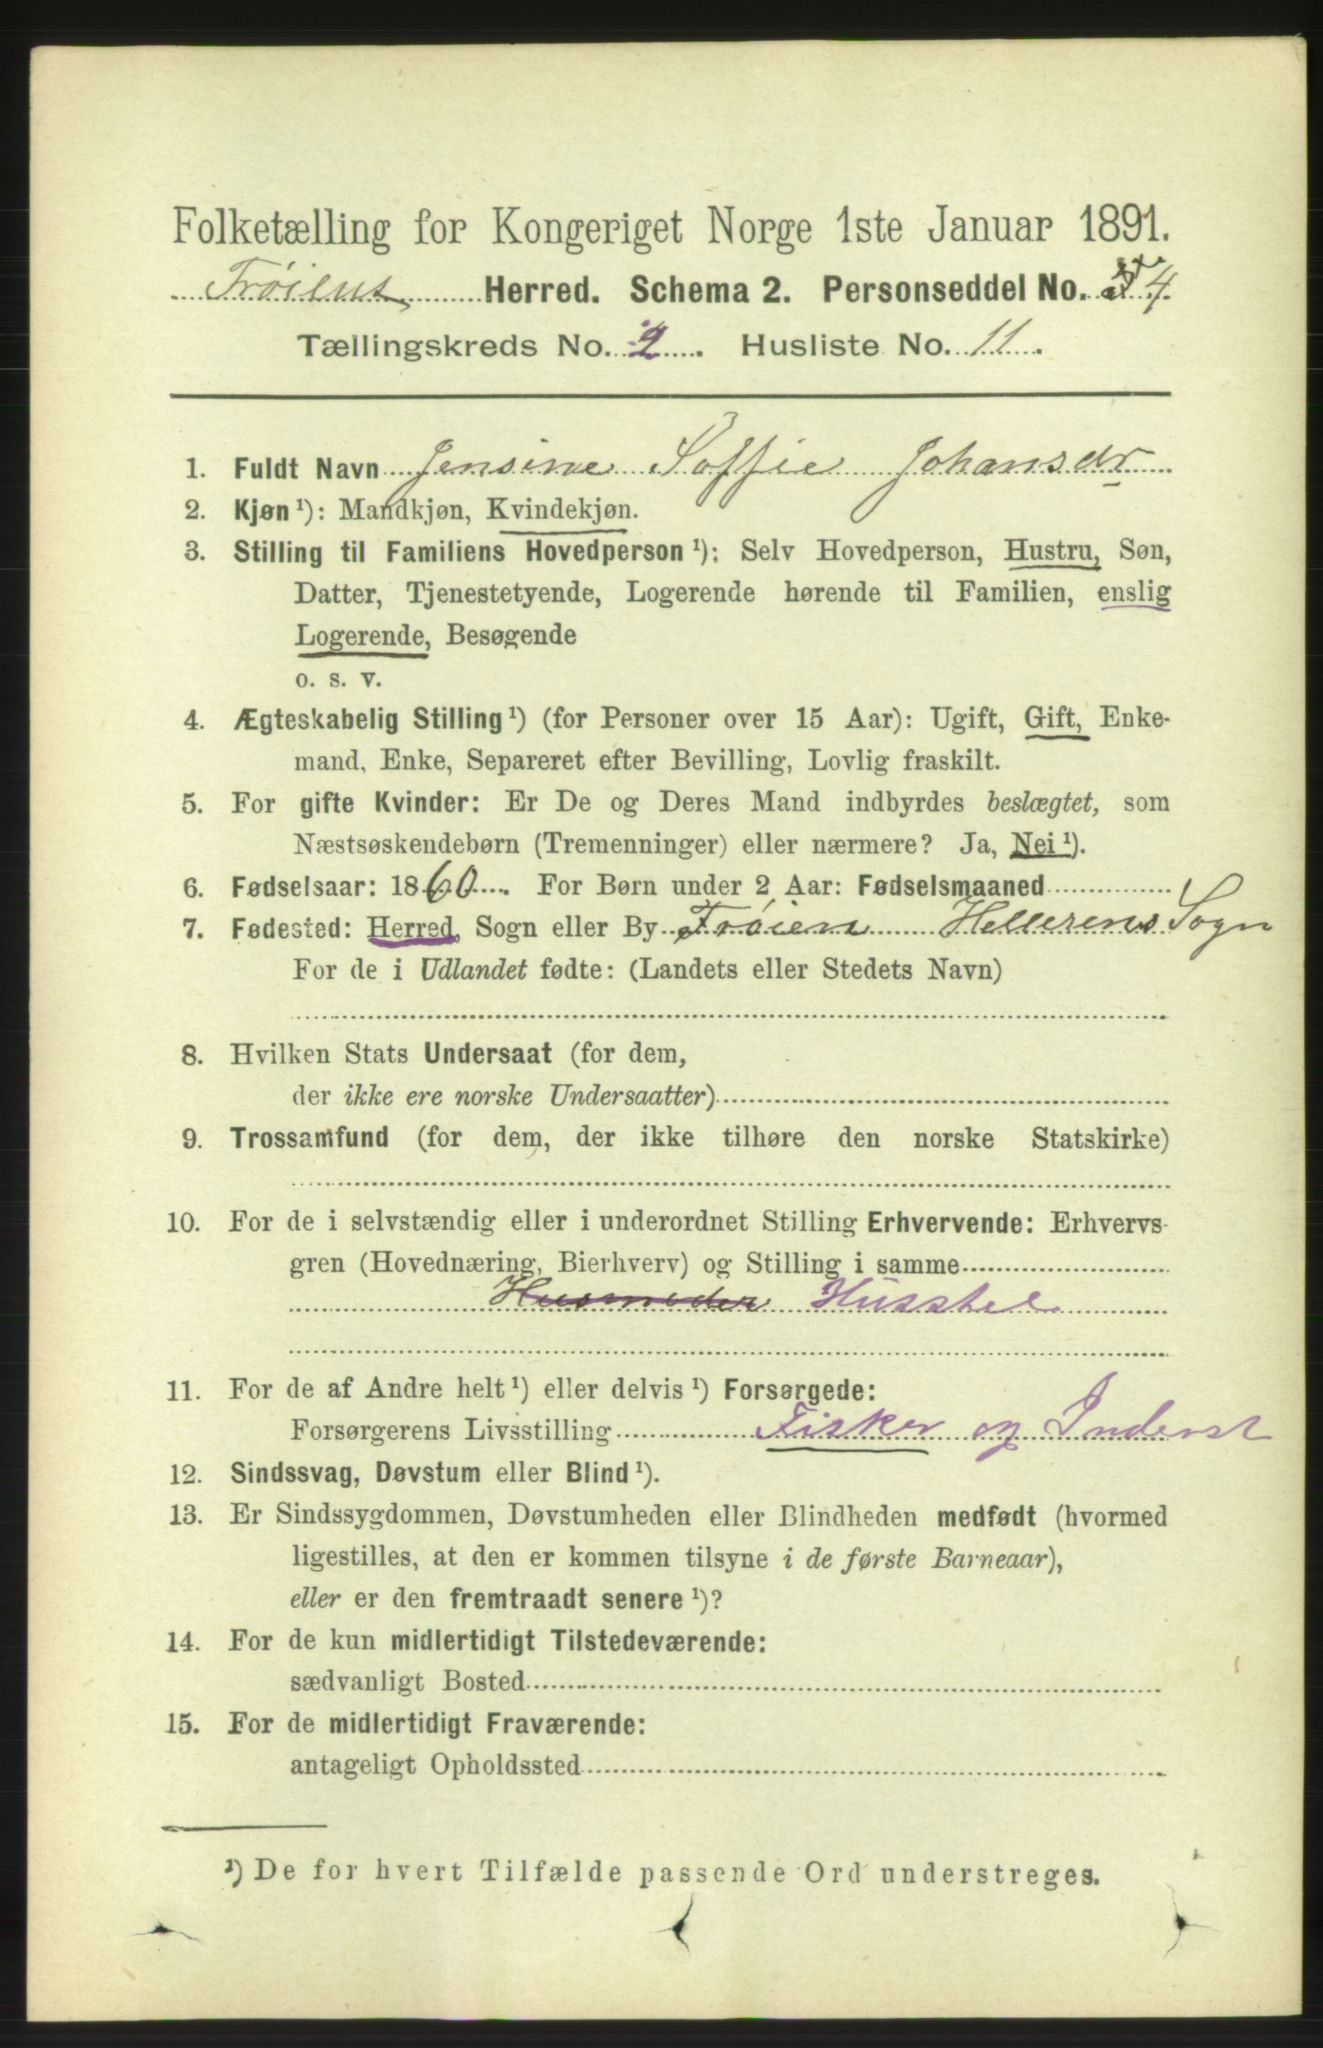 Folketælling for Kongeriget Norge 1ste Januar 1891.
Frøiens Herred. Schema 2. Personseddel No. 4.
Tællingskreds No. 2. Husliste No. 11.
1. Fuldt Navn Jensine Soffie Johansdr
2. Kjøn ¹): Mandkjøn, Kvindekjøn.
3. Stilling til Familiens Hovedperson ¹): Selv Hovedperson, Hustru, Søn,
Datter, Tjenestetyende, Logerende hørende til Familien, enslig
Logerende, Besøgende
o. s. v.
4. Ægteskabelig Stilling ¹) (for Personer over 15 Aar): Ugift, Gift, Enke-
mand, Enke, Separeret efter Bevilling, Lovlig fraskilt.
5. For gifte Kvinder: Er De og Deres Mand indbyrdes beslægtet, som
Næstsøskendebørn (Tremenninger) eller nærmere? Ja, Nei ¹).
6. Fødselsaar: 1860. For Børn under 2 Aar: Fødselsmaaned
7. Fødested: Herred, Sogn eller By Frøien Hellerens Sogn
For de i Udlandet fødte: (Landets eller Stedets Navn)
8. Hvilken Stats Undersaat (for dem,
der ikke ere norske Undersaatter)
9. Trossamfund (for dem, der ikke tilhøre den norske Statskirke)
10. For de i selvstændig eller i underordnet Stilling Erhvervende: Erhvervs-
gren (Hovednæring, Bierhverv) og Stilling i samme
Husmoder Husstel
11. For de af Andre helt ¹) eller delvis ¹) Forsørgede:
Forsørgerens Livsstilling Fisker og Inderst
12. Sindssvag, Døvstum eller Blind ¹).
13. Er Sindssygdommen, Døvstumheden eller Blindheden medfødt (hvormed
ligestilles, at den er kommen tilsyne i de første Barneaar),
eller er den fremtraadt senere ¹)?
14. For de kun midlertidigt Tilstedeværende:
sædvanligt Bosted
15. For de midlertidigt Fraværende:
antageligt Opholdssted
¹) De for hvert Tilfælde passende Ord understreges.